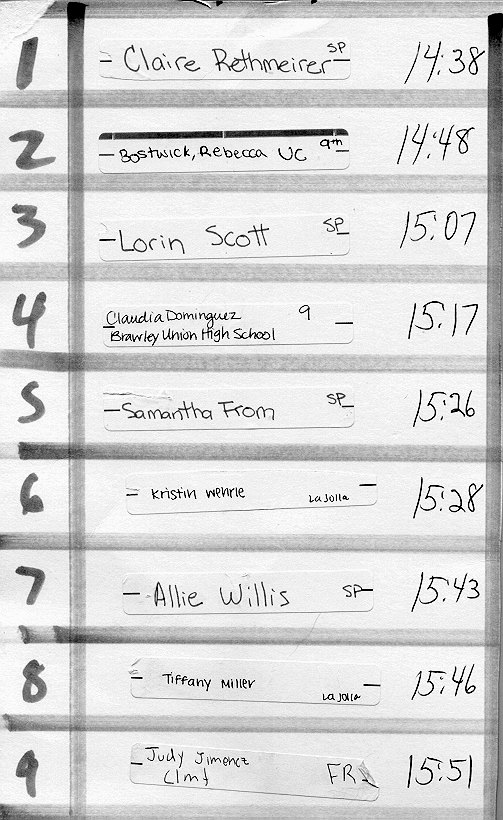 1 Claire Rethmeirer SP 14:38
2 Bostwick, Rebecca UC 9th 14:48
3 Lorin Scott SP 15:07
4 Claudia Dominguez 9 15:17
Brawley Union High School
5 Samantha From SP 15:26
6 Kristin Wehrle La Jolla 15:28
7 Allie Willis SP 15:43
8 Tiffany Miller La Jolla 15:46
9 Judy Jimenez FR 15:51
Clmt